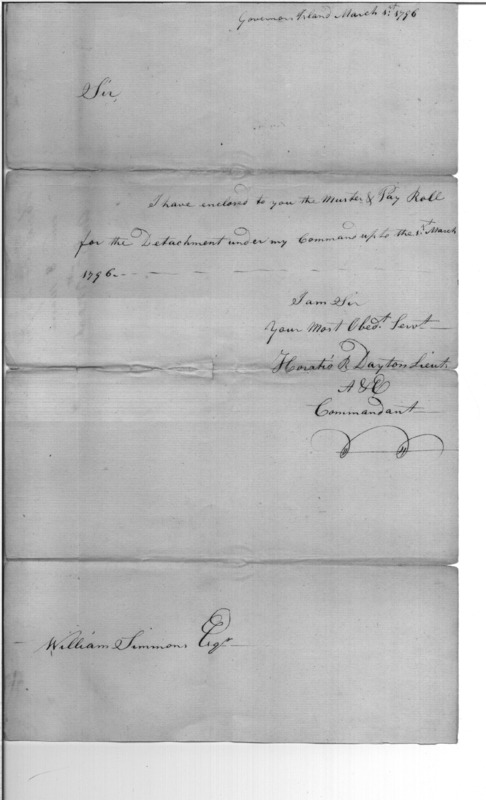 Governors Island March 1st 1796
Sir,
I have enclosed to you the Muster & Pay Roll
for the Detachment under my Command up to the 1st March
1796
I am Sir
Your Most Obedt Servt
Horatio R Dayton Lieut.
A & E
Commandant
William Simmons Esqr